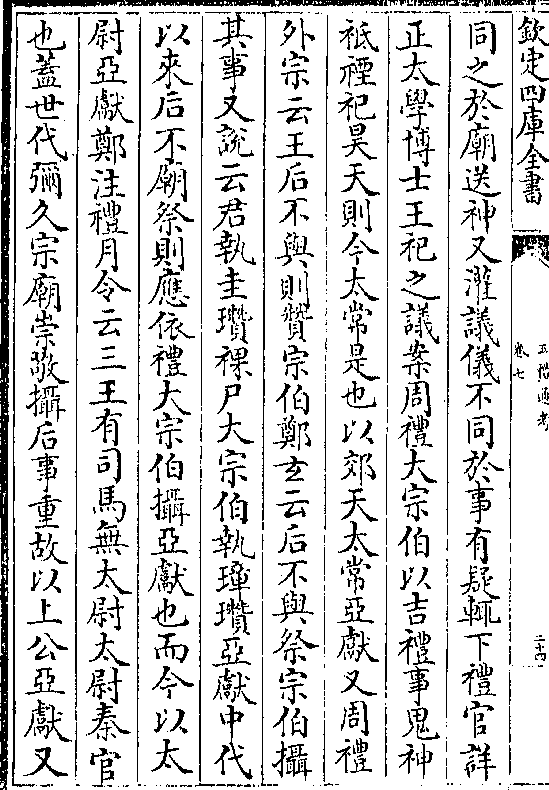 欽定四庫全書
五禮通考
卷七
二十四
同之於廟送神又灌議儀不同於事有疑輒下禮官詳
正太學博士王祀之議案周禮大宗伯以吉禮事鬼神
祗禋祀昊天則今太常是也以郊天太常亞獻又周禮
外宗云王后不與則贊宗伯鄭玄云后不與祭宗伯攝
其事又說云君執圭瓚祼尸大宗伯執璋瓚亞獻中代
以來后不廟祭則應依禮大宗伯攝亞獻也而今以太
尉亞獻鄭注禮月令云三王有司馬無太尉太尉秦官
也蓋世代彌久宗廟崇敬攝后事重故以上公亞獻又